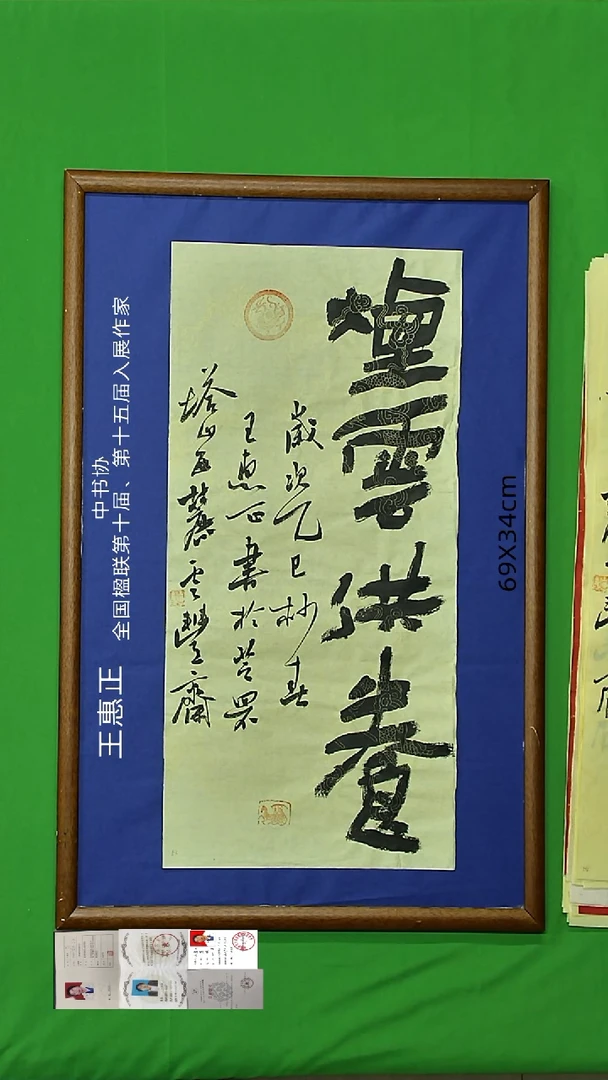 煙雲供養
歲次乙巳杪春
王惠正書於芝罘
塔山西麓雲齋
王惠正
中书协
全国楹联第十届、第十五届入展作家
69X34cm